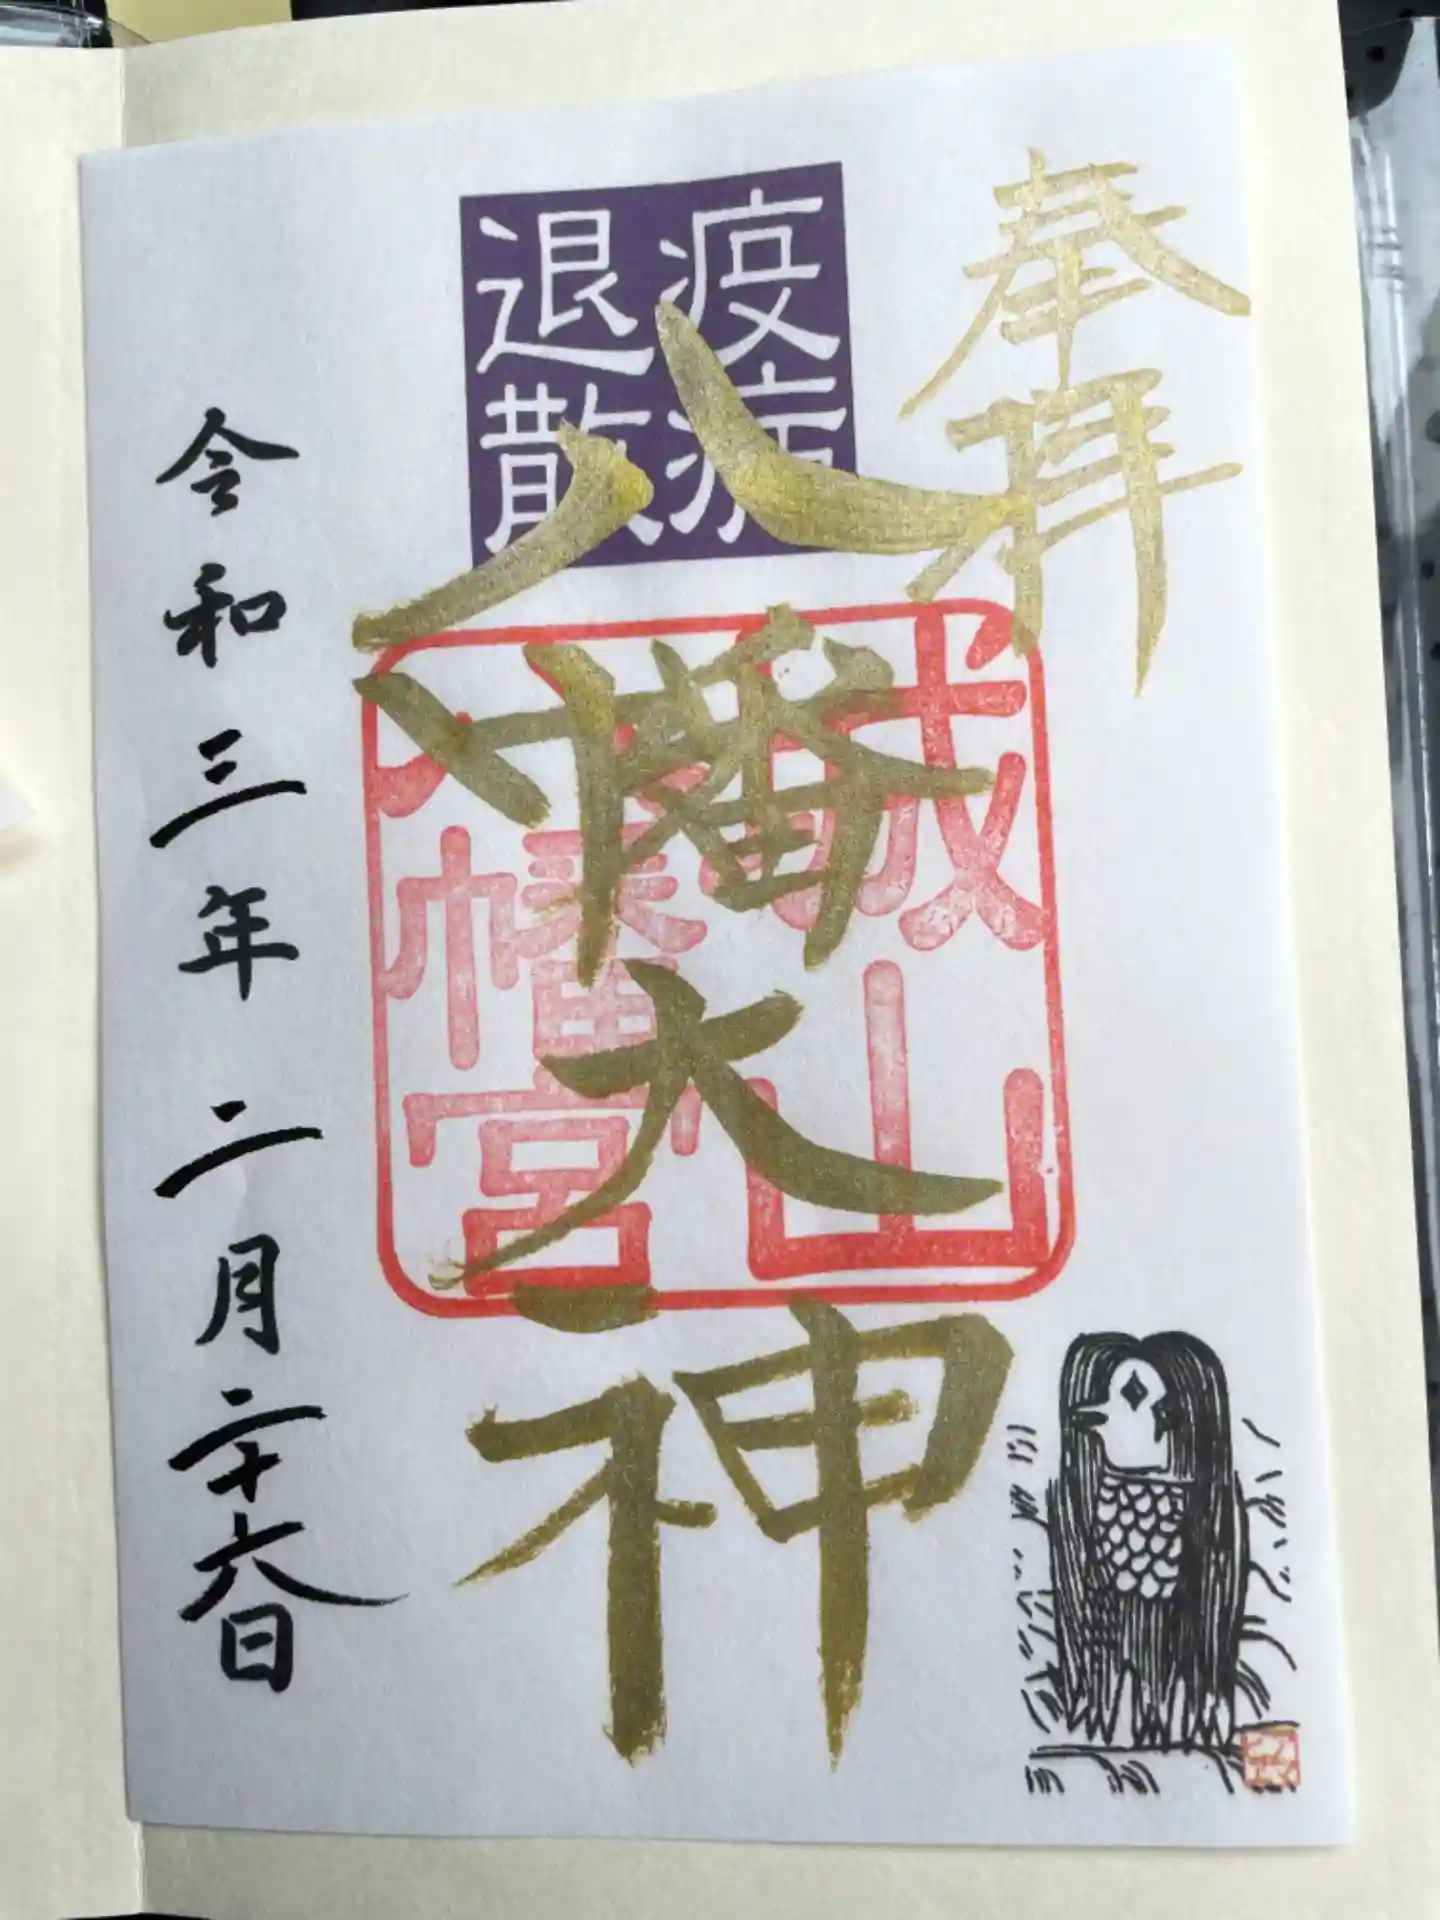 奉拝
疫病
退散
八幡大神
城山
八幡宮
令和三年二月二十六日